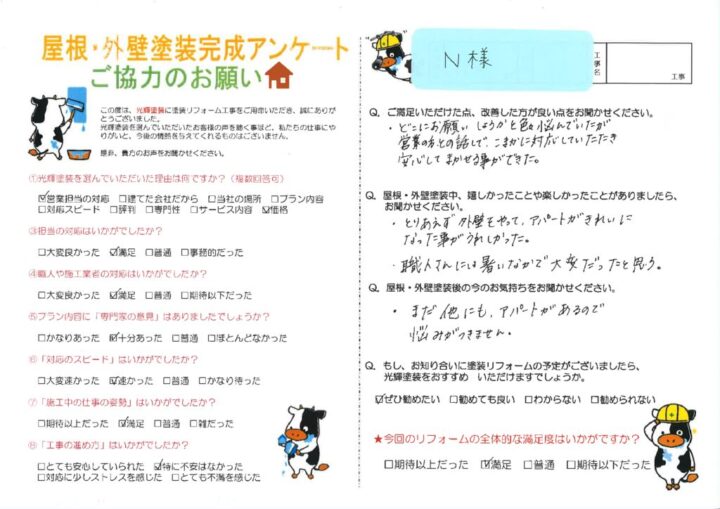 屋根・外壁塗装完成アンケート
ご協力のお願い
この度は、光輝塗装に塗装リフォーム工事をご用命いただき、誠にありがとうございました。
光輝塗装を選んでいただいたお客様の声を聴く事ほど、私たちの仕事にやりがいと、今後の情熱を与えてくれるものはございません。
是非、貴方のお声をお聞かせください。
①光輝塗装を選んでいただいた理由は何ですか?(複数回答可)
☑営業担当の対応 □建てた会社だから □当社の場所 □プラン内容
□対応スピード □評判 □専門性 □サービス内容 ☑価格
③担当の対応はいかがでしたか?
□大変良かった ☑満足 □普通 □事務的だった
④職人や施工業者の対応はいかがでしたか?
□大変良かった ☑満足 □普通 □期待以下だった
⑤プラン内容に「専門家の意見」はありましたでしょうか?
□かなりあった ☑十分あった □普通 □ほとんどなかった
⑥「対応のスピード」はいかがでしたか?
□大変速かった ☑速かった □普通 □かなり待った
⑦「施工中の仕事の姿勢」はいかがでしたか?
□期待以上だった ☑満足 □普通 □雑だった
⑧「工事の進め方」はいかがでしたか?
□とても安心していられた ☑特に不安はなかった
□対応に少しストレスを感じた □とても不満を感じた
N様
工事名
工事
Q. ご満足いただけた点、改善した方が良い点をお聞かせください。
・どこにお願いしようかと色々悩んでいたが
営業の方との話しで、こまかに対応していただき
安心してまかせる事ができた。
Q. 屋根・外壁塗装中、嬉しかったことや楽しかったことがありましたら、
お聞かせください。
・とりあえず外壁をやって、アパートがきれいに
なった事がうれしかった。
・職人さんには暑いなかで大変だったと思う。
Q. 屋根・外壁塗装後の今のお気持ちをお聞かせください。
・まだ他にも、アパートがあるので
悩みがつきません。
Q. もし、お知り合いに塗装リフォームの予定がございましたら、
光輝塗装をおすすめ いただけますでしょうか。
☑ぜひ勧めたい □勧めても良い □わからない □勧められない
★今回のリフォームの全体的な満足度はいかがですか?
□期待以上だった ☑満足 □普通 □期待以下だった